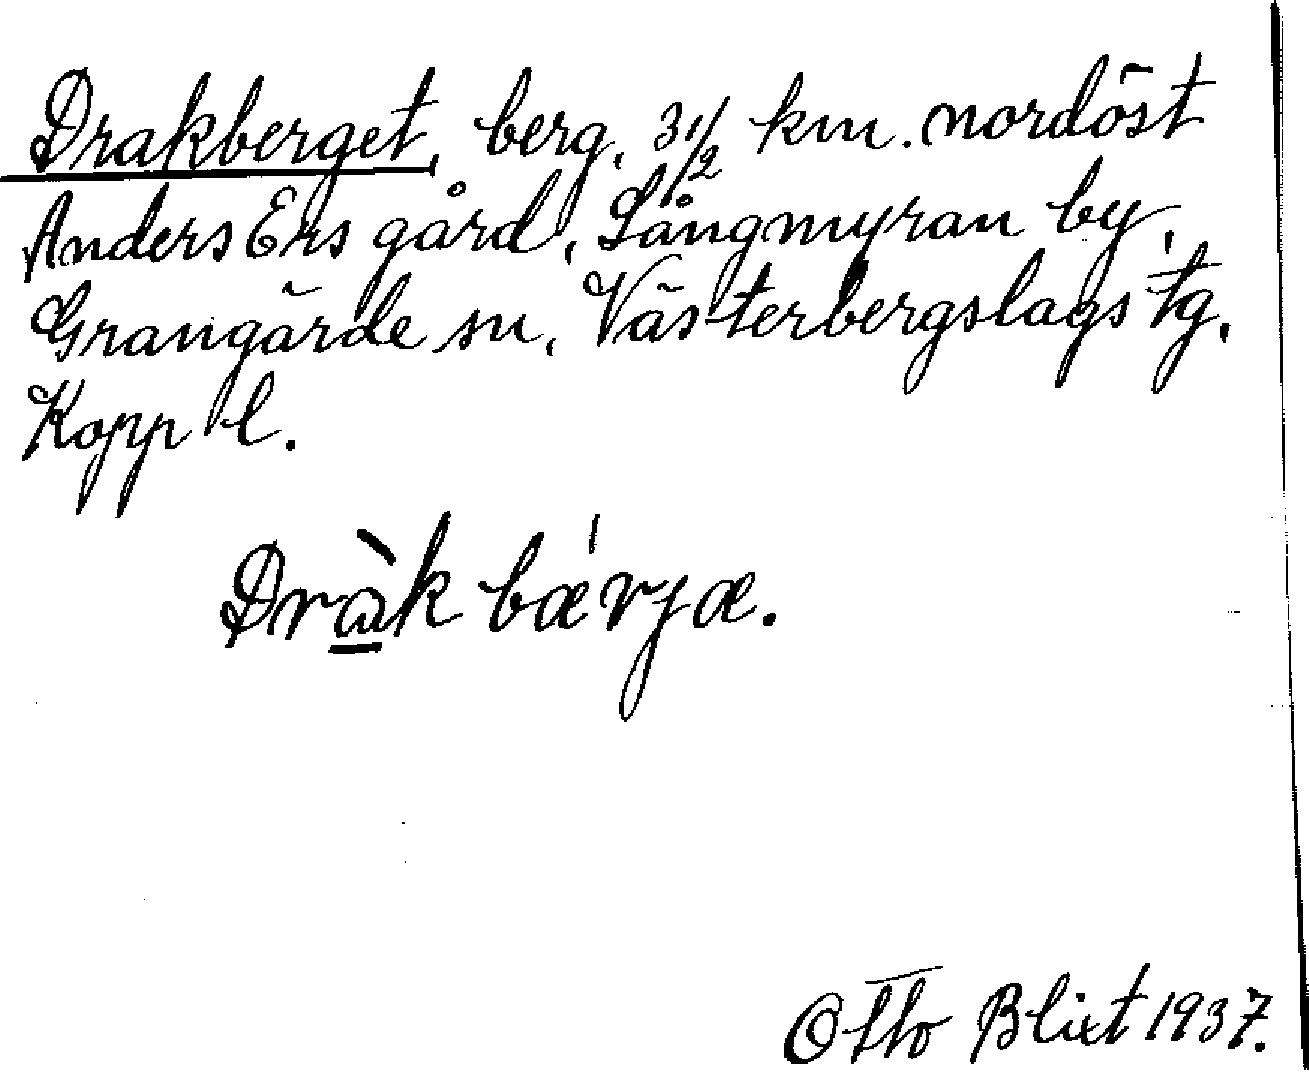 Drakberget, berg, 3 1/2 km. nordöst
Anders Ers gård, Långmyran by,
Grangärde sn, Västerbergslags tg,
Kopp l.
Dràk bæ'rjæ.
Otto Blixt 1937.